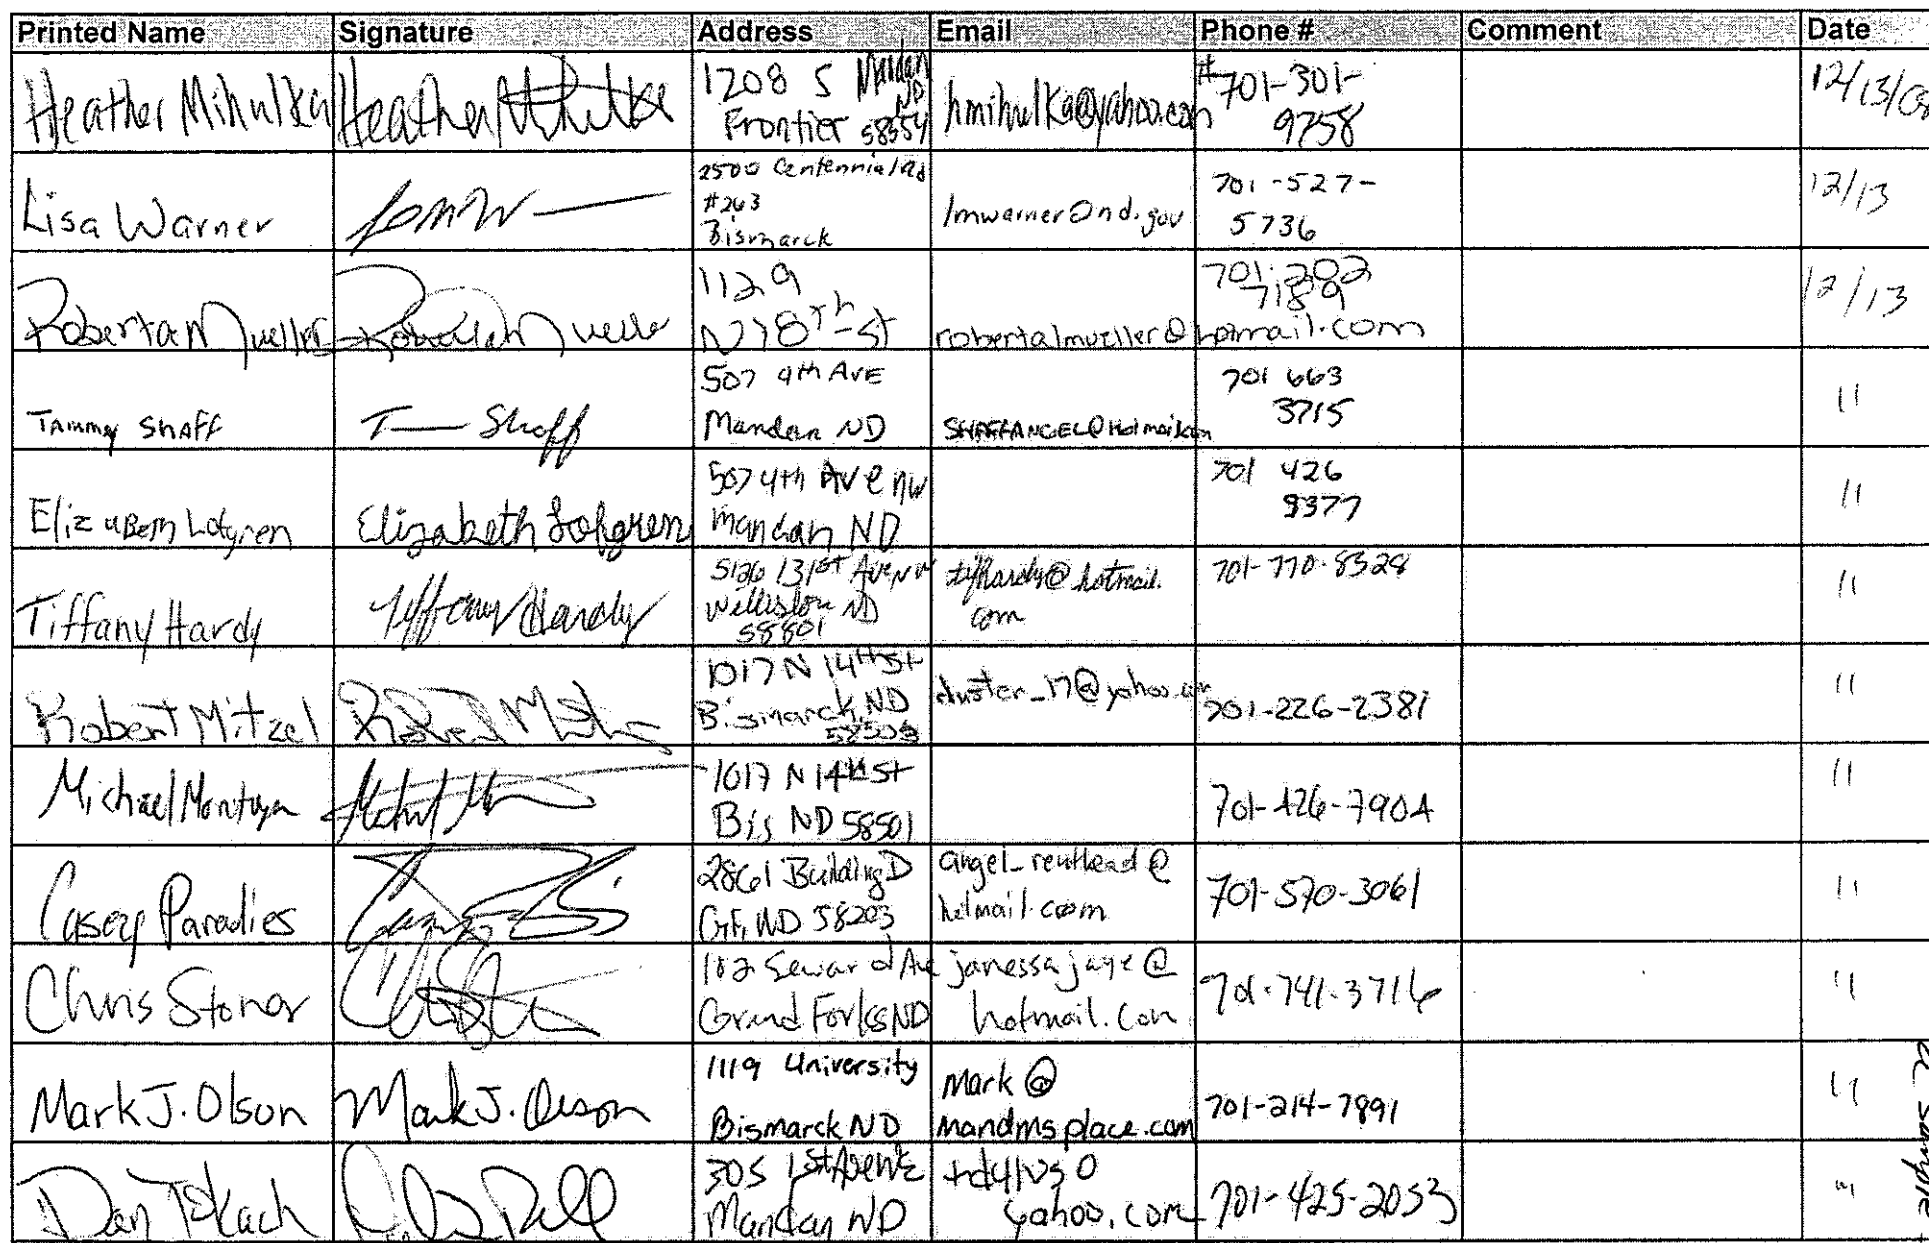 Printed Name Signature Address Email Phone # Comment Date
Heather Mihulka Heather Mihulka 1208 S Mandan ND Frontier 58554 hmihulka@yahoo.com #701-301-9758 12/13/08
Lisa Warner 2500 Centennial Rd #263 Bismarck lmwarner@nd.gov 701-527-5736 12/13
Roberta Mueller Roberta Mueller 1129 N 18th St robertalmueller@hotmail.com 701-202 7189 12/13
Tammy Shaff T Shaff 507 4th Ave Mandan ND SHAFFANGEL@Hotmail.com 701 663 3715 11
Elizabeth Lofgren Elizabeth Lofgren 507 4th Ave NW Mandan ND 701 426 9377 11
Tiffany Hardy Tiffany Hardy 5126 131st Ave NW Williston ND 58801 tifhardy@hotmail.com 701-770-8328 11
Robert Mitzel Robert 1017 N 14th St Bismarck, ND duster_17@yahoo.com 701-226-2381 11
Michael Montoya 1017 N 14th St Bis ND 58501 701-426-7904 11
Casey Paradies 2861 Building D G.F. ND 58203 hotmail.com 701-570-3061 11
Chris Stoner 102 Seward Ave Grand Forks ND janessajaye@hotmail.com 701-741-3716 11
Mark J. Olson Mark J. Olson 1119 University Bismarck ND Mark@mandmsplace.com 701-214-7891 11
Dan Tokach 305 1st Ave NE Mandan ND yahoo.com 701-425-2053 "